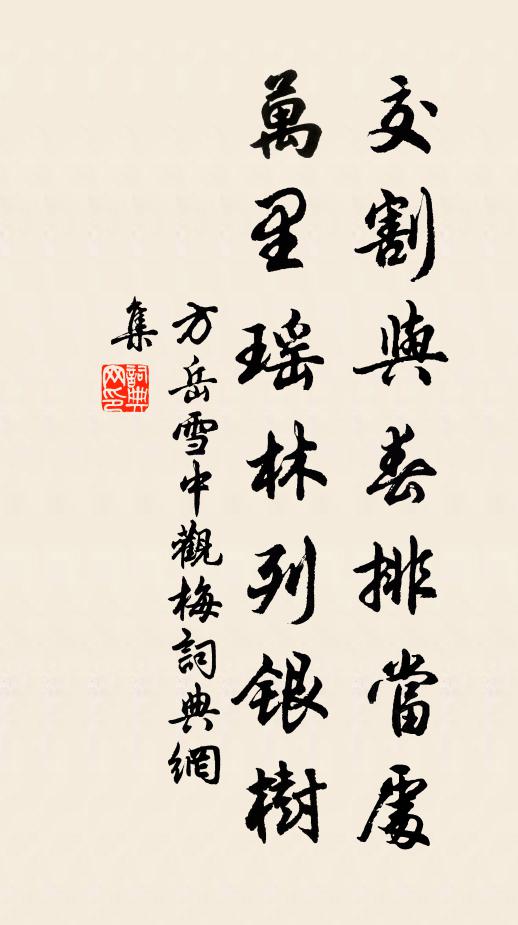 交割與春排當處
萬里瑶林列銀樹
方岳雪中觀梅詞典網
集
詞典网印